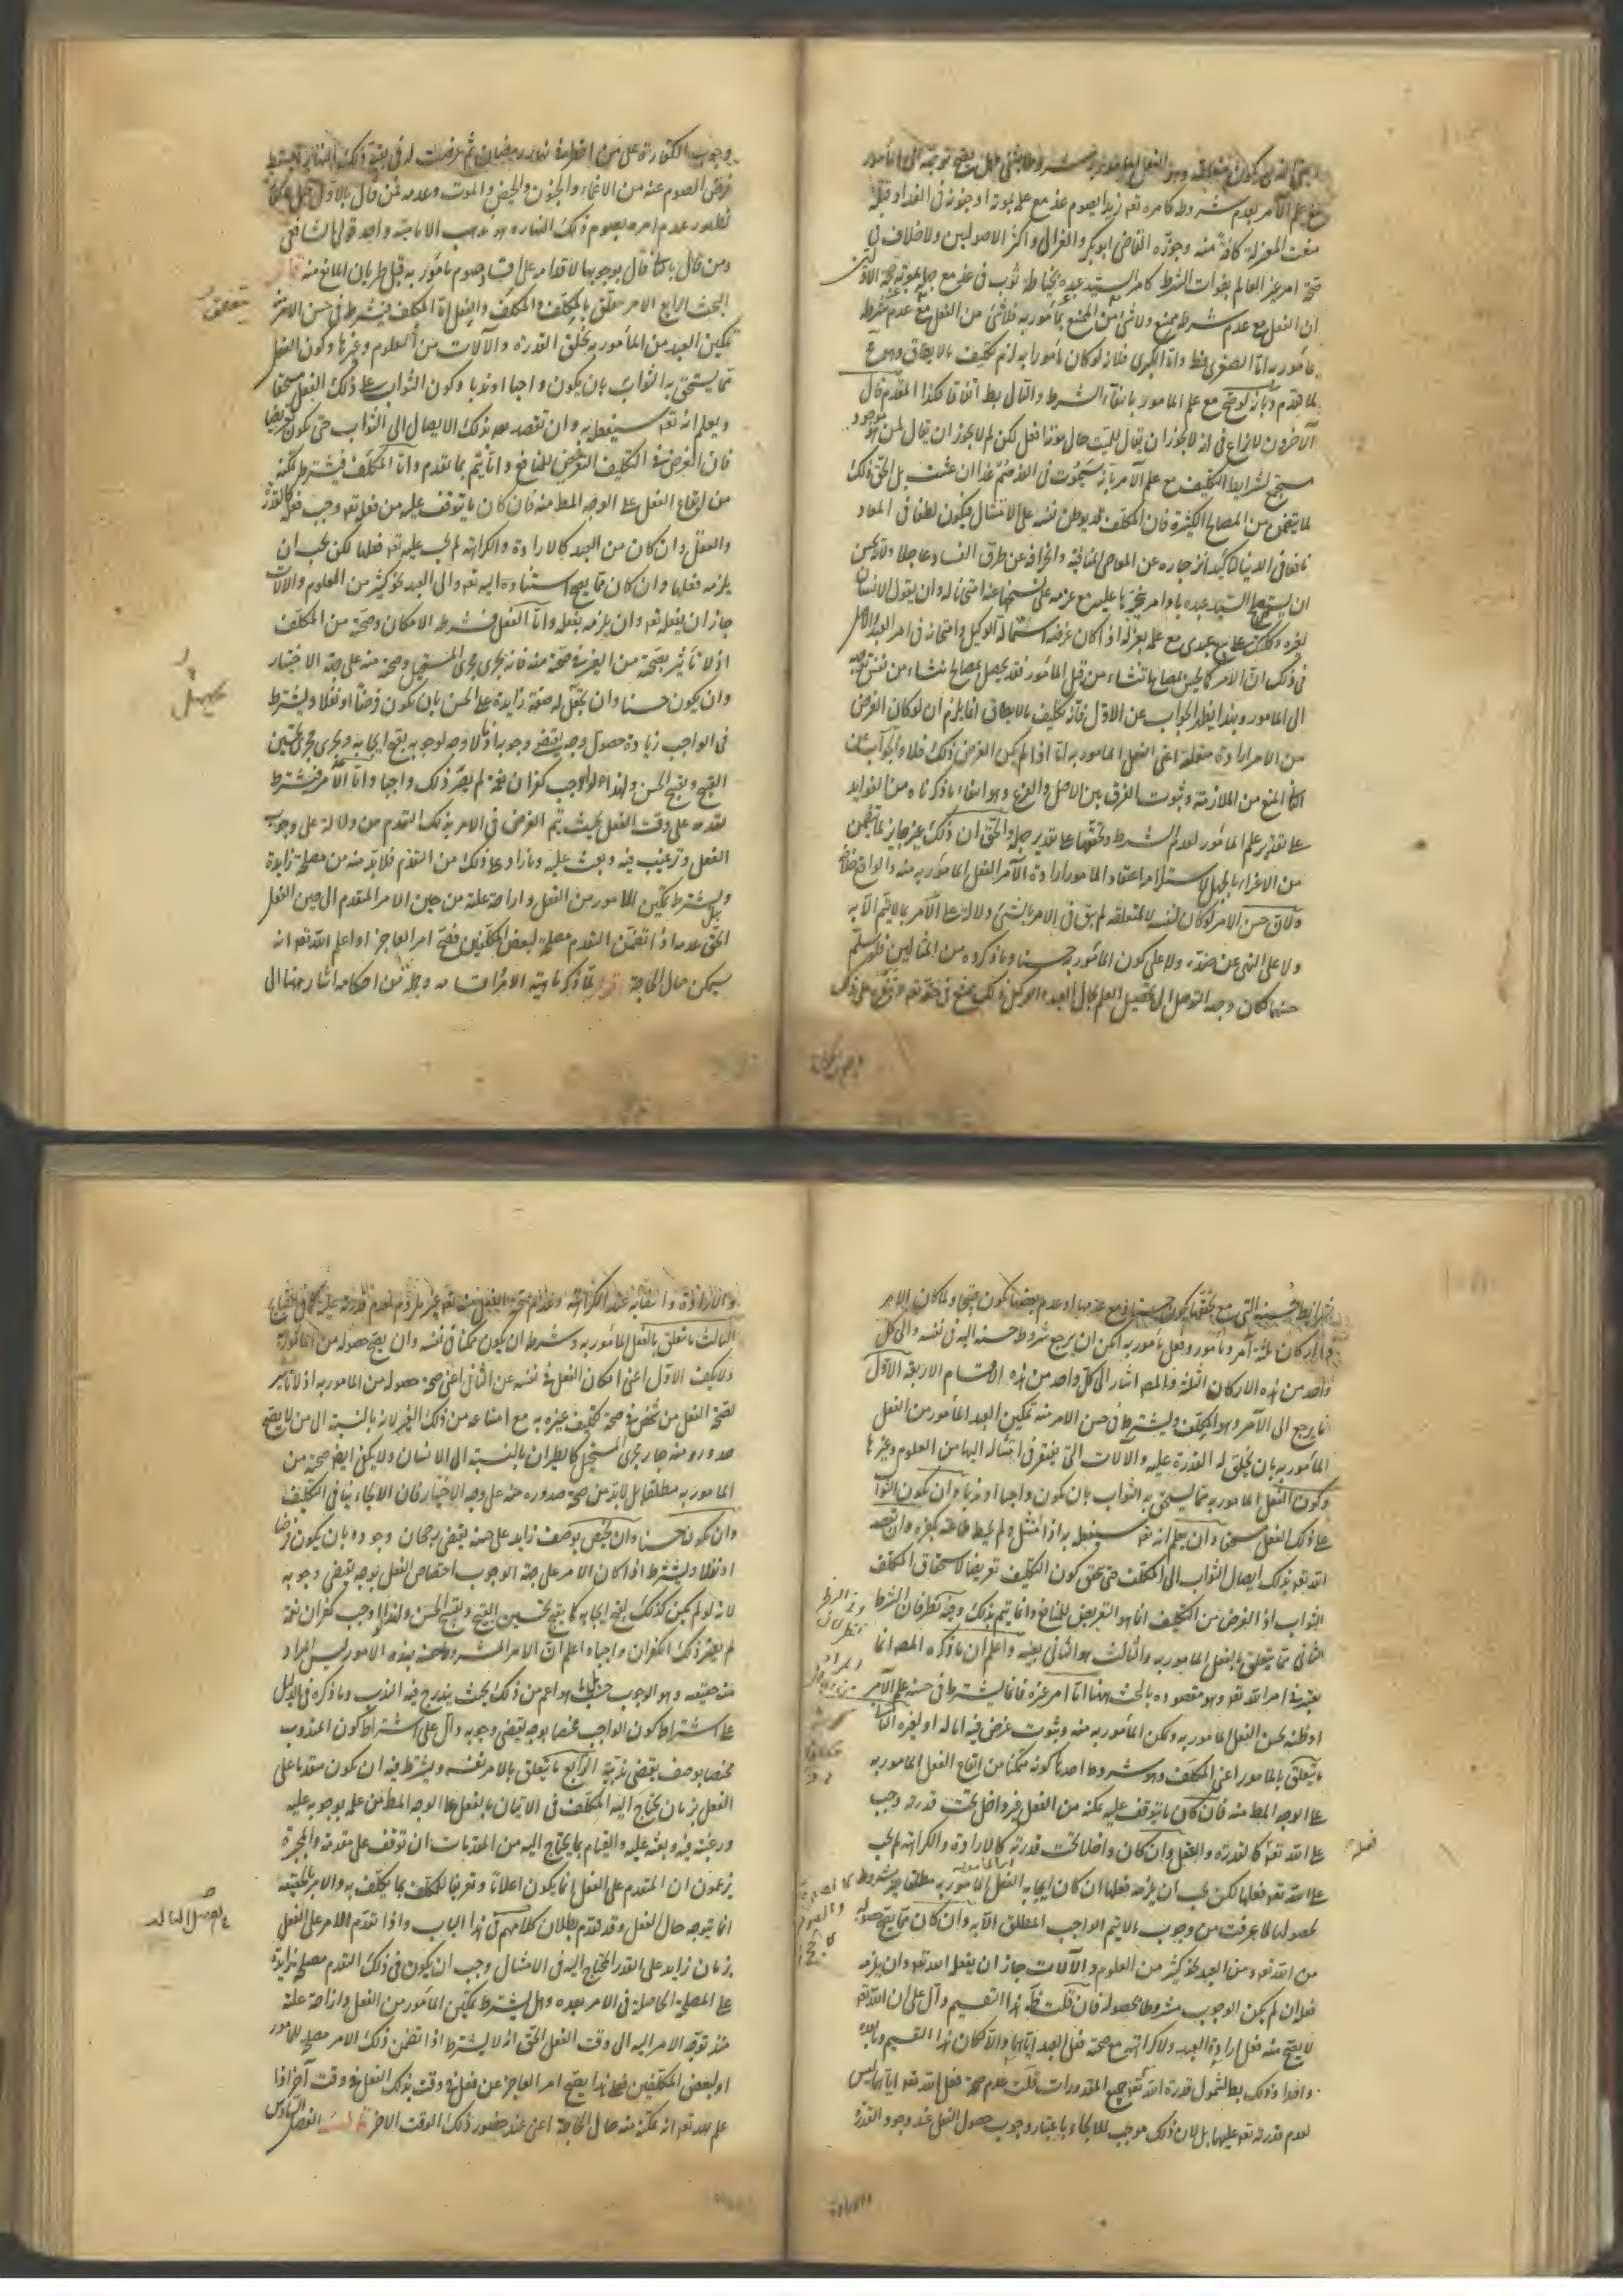 مع علم الآمر بعدم شروطه كامره تعه زيدا بصوم غد مع علمه بموته او جنونه في الغد او قبله
منعت المعتزلة كافة منه وجوزه القاضى ابو بكر والغزالى واكثر الاصوليين ولا خلاف فى
صحة امر غير العالم بفوات الشرط كامر السيد عبده بخياطة ثوب فى غد مع جهله بموته
ان الفعل مع عدم شرطه ممتنع ولا شئ من الممتنع بمأمور به فلا شئ من الفعل مع عدم شرطه
بمأمور به اما الصغرى فظ واما الكبرى فلانه لو كان مأمورا به لزم تكليف ما لا يطاق وهو مح
لما تقدم وبأنه لو صح مع علم المأمور بانتفاء الشرط والتالى بط اتفاقا فكذا المقدم قال
الآخرون لا نزاع فى انه لا يجوز ان يقال للميت حال موته افعل لكن لم لا يجوز ان يقال لمن هو موجود
مستجمع لشرايط التكليف مع علم الآمر بانه سيموت فى الغد صم غدا ان عشت بل الحق ذلك
لما يتضمن من المصالح الكثيرة فان المكلف قد يوطن نفسه على الامتثال فيكون لطفا فى المعاد
نافعا فى الدنيا
ان يستصلح السيد عبده باوامر ينجزها عليه مع عزمه على نسخها عنه امتحانا له وان يقول الانسان
لغيره وكلتك على بيع عبدى مع علمه بعزله اذا كان غرضه استمالة الوكيل وامتحانه فى امر العبد والاصل
فى ذلك ان الامر كما يحسن لمصالح تنشاء من قبل المأمور فقد يحصل لمصالح تنشاء من نفس توجهه
الى المأمور وبهذا يظهر الجواب عن الاول فانه تكليف ما لا يطاق انما يلزم ان لو كان الغرض
من الامر ارادة متعلقه اعنى الفعل المأمور به اما اذا لم يكن الغرض ذلك فلا والجواب عن
الثانى المنع من الملازمة وثبوت الفرق بين الاصل والفرع وهو انتفاء ما ذكرناه من الفوايد
على تقدير علم المأمور لعدم الشرط وتحققها على تقدير جهله والحق ان ذلك غير جايز لما يتضمن
من الاغراء بالجهل لاستلزامه اعتقاد المأمور ارادة الآمر الفعل المأمور به منه والواقع خلافه
ولان حسن الامر لو كان لنفسه لا لمتعلقه لم يبق فى الامر بالشئ دلالة على الامر بما لا يتم الا به
ولا على النهى عن ضده ولا على كون المأمور به حسنا وما ذكروه من المثالين فلو سلم
حسنهما فكان وجهه التوصل الى تحصيل العلم بحال العبد والوكيل وذلك ممتنع فى حقه تعه
وجوب الكفارة على من افطر فى نهار رمضان ثم عرضت له فى بقية ذلك النهار
فرض الصوم عنه من الاغماء والجنون والحيض والموت وعدمه فمن قال بالاول
لظهور عدم امره بصوم ذلك النهار وهو مذهب الامامية واحد قولى الشافعى
ومن قال بالثانى قال بوجوبها لاقدامه على افساد صوم مأمور به قبل طريان المانع منه قال
البحث الرابع الامر متعلق بالمكلِّف والمكلَّف والفعل اما المكلف فيشترط فى حسن الامر منه
تمكين العبد من المأمور به بخلق القدرة والآلات من العلوم وغيرها وكون الفعل
مما يستحق به الثواب بان يكون واجبا او ندبا وكون الثواب على ذلك الفعل مستحقا
ويعلم انه تعه سيفعل به وان يقصد بعد بذلك الايصال الى الثواب حتى يكون تعريضا
فان الغرض فى التكليف التعريض للمنافع وانما يتم بما تقدم واما المكلف فيشترط تمكنه
من ايقاع الفعل على الوجه المط منه فان كان ما يتوقف عليه من فعله تعه وجب فعله كالقدرة
والعقل وان كان من العبد كالارادة والكراهة لم يجب عليه تعه فعلها لكن يجب ان
يلزمه فعلها وان كان مما يصح استناده اليه تعه والى العبد نحو كثير من العلوم والآلات
جاز ان يفعله تعه وان يلزمه بفعله واما الفعل فشرطه الامكان وصحته من المكلف
اذ لا تأثير بصحته من الغير فى صحته منه فانه يجرى مجرى المستحيل وصحته منه على جهة الاختيار
وان يكون حسنا وان يجعل له صفة زايدة على الحسن بان يكون فرضا او نفلا ويشترط
فى الواجب زيادة حصول وجه يقتضى وجوبه اذ ما لا وجه لوجوبه يقبح ايجابه ويجرى مجرى تحسين
القبيح وتقبيح الحسن ولهذا لو اوجب كفران نعمة لم يصر ذلك واجبا واما الامر فيشترط
تقدمه على وقت الفعل بحيث يتم الغرض فى الامر بذلك التقدم من دلالة على وجوب
الفعل وترغيب فيه وبعث عليه وما زاد على ذلك من التقدم فلا بد منه من مصلحة زايدة
ويشترط تمكين المأمور من الفعل وازاحة علته من حين الامر المتقدم الى حين الفعل
بل الحق عدمه اذا تضمن التقدم مصلحة لبعض المكلفين فصح امر العاجز اذا علم الله تعه انه
سيمكن حال الحاجة اقول لما ذكر ماهية الامر واقسامه وجملة من احكامه اشار ههنا الى
شرايط حسنه التى مع تحققها يكون حسنا ومع عدمها او عدم بعضها يكون قبيحا ولما كان للامر
اركان ثلثة آمر ومأمور وفعل مأمور به امكن ان يرجع شروط حسنه اليه فى نفسه والى كل
واحد من هذه الاركان الثلثة والمصـ اشار الى كل واحد من هذه الاقسام الاربعة الاول
ما يرجع الى الآمر وهو المكلف ويشترط فى حسن الامر منه تمكين العبد المأمور من الفعل
المأمور به بان يخلق له القدرة عليه والآلات التى يفتقر فى امتثاله اليها من العلوم وغيرها
وكون الفعل المأمور به مما يستحق به الثواب بان يكون واجبا او ندبا وان يكون الثواب
على ذلك الفعل مستحقا وان يعلم انه تعه سيفعل به اذا امتثل ولم يحبط طاعته بكفره وان يقصد
الله تعه بذلك ايصال الثواب الى المكلف حتى يحقق كون التكليف تعريضا لاستحقاق المكلف
الثواب اذ الغرض من التكليف انما هو التعريض للمنافع وانما يتم بذلك وفيه نظر فان الشرط
الثانى مما يتعلق بالفعل المأمور به والثالث هو الثانى بعينه واعلم ان ما ذكره المصـ انما
يعتبر فى امر الله تعه وهو مقصوده بالبحث ههنا اما امر غيره فانما يشترط فى حسنه علم الآمر
او ظنه بحسن الفعل المأمور به وتمكن المأمور به منه وثبوت غرض فيه اما له او لغيره الثانى
ما يتعلق بالمأمور اعنى المكلف وهو شروط احدها كونه متمكنا من ايقاع الفعل المأمور به
على الوجه المط منه فان كان ما يتوقف عليه تمكنه من الفعل غير داخل تحت قدرته وجب
على الله تعه كالقدرة والعقل وان كان داخلا تحت قدرته كالارادة والكراهة لم يجب
على الله تعه فعلها لكن يجب ان يلزمه فعلها ان كان ايجابه الفعل المأمور به مطلقا غير مشروط
بحصولها لما عرفت من وجوب ما لا يتم الواجب المطلق الا به وان كان مما يصح حصوله
من الله تعه ومن العبد نحو كثير من العلوم والآلات جاز ان يفعله الله تعه وان يلزمه
فعله ان لم يكن الوجوب مشروطا بحصوله فان قلت هذا التقسيم دال على ان الله تعه
لا يصح منه فعل ارادة العبد ولا كراهته مع صحة فعل العبد اياهما والا لكان هذا القسيم وما بعده
واحدا وذلك بط لشمول قدرة الله تعه جميع المقدورات قلت عدم صحة فعل الله تعه اياهما ليس
لعدم قدرته تعه عليهما بل لان ذلك موجب للالجاء باعتبار وجوب حصول الفعل عند وجود القدرة
والارادة وانتفائه عند الكراهة وعدم صحة الفعل منه تعه غير ملزوم لعدم قدرته عليه كما فى القبايح
الثالث ما يتعلق بالفعل المأمور به وشرطه ان يكون ممكنا فى نفسه وان يصح حصوله من المأمور به
ولا يكفى الاول اعنى امكان الفعل فى نفسه عن الثانى اعنى صحة حصوله من المأمور به اذ لا تأثير
لصحة الفعل من شخص فى صحة تكليف غيره به مع امتناعه من ذلك الغير لانه بالنسبة الى من لا يصح
صدوره منه جار مجرى المستحيل كالطيران بالنسبة الى الانسان ولا يكفى ايضا صحته من
المأمور به مطلقا بل لا بد من صحة صدوره منه على وجه الاختيار فان الالجاء ينافى التكليف
وان يكون حسنا وان يختص بوصف زايد على حسنه يقتضى رجحان وجوده بان يكون فرضا
او نفلا ويشترط اذا كان الامر على جهة الوجوب اختصاص الفعل بوجه يقتضى وجوبه
لانه لو لم يكن كذلك لقبح ايجابه كما يقبح تحسين القبيح وتقبيح الحسن ولهذا لو اوجب كفران نعمة
لم يصر ذلك الكفران واجبا واعلم ان الامر المشروط حسنه بهذه الامور ليس المراد
منه حقيقته وهو الوجوب بل ما هو اعم من ذلك بحيث يندرج فيه الندب وما ذكره فى الدليل
على اشتراط كون الواجب مختصا بوجه يقتضى وجوبه دال على اشتراط كون المندوب
مختصا بوصف يقتضى ندبيته الرابع ما يتعلق بالامر نفسه ويشترط فيه ان يكون متقدما على
الفعل بزمان يحتاج اليه المكلف فى الاتيان بالفعل على الوجه المط من علمه بوجوبه عليه
ورغبته فيه وبعثه عليه والقيام بما يحتاج اليه من المقدمات ان توقف على مقدمة والمجبرة
يزعمون ان المتقدم على الفعل انما يكون اعلاما وتعريفا للمكلف بما يكلف به والامر بالحقيقة
انما يتوجه حال الفعل وقد تقدم بطلان كلامهم فى هذا الباب واذا تقدم الامر على الفعل
بزمان زايد على القدر المحتاج اليه فى الامتثال وجب ان يكون فى ذلك التقدم مصلحة زايدة
على المصلحة الحاصلة فى الامر بعده وهل يشترط تمكين المأمور من الفعل وازاحة علته
منذ توجه الامر اليه الى وقت الفعل الحق انه لا يشترط اذا تضمن ذلك الامر مصلحة للمأمور
او لبعض المكلفين فعلى هذا يصح امر العاجز عن فعل فى وقت بذلك الفعل فى وقت آخر اذا
علم الله تعه انه يمكنه منه حال الحاجة اعنى عند حضور ذلك الوقت الآخر قال الفصل السادس